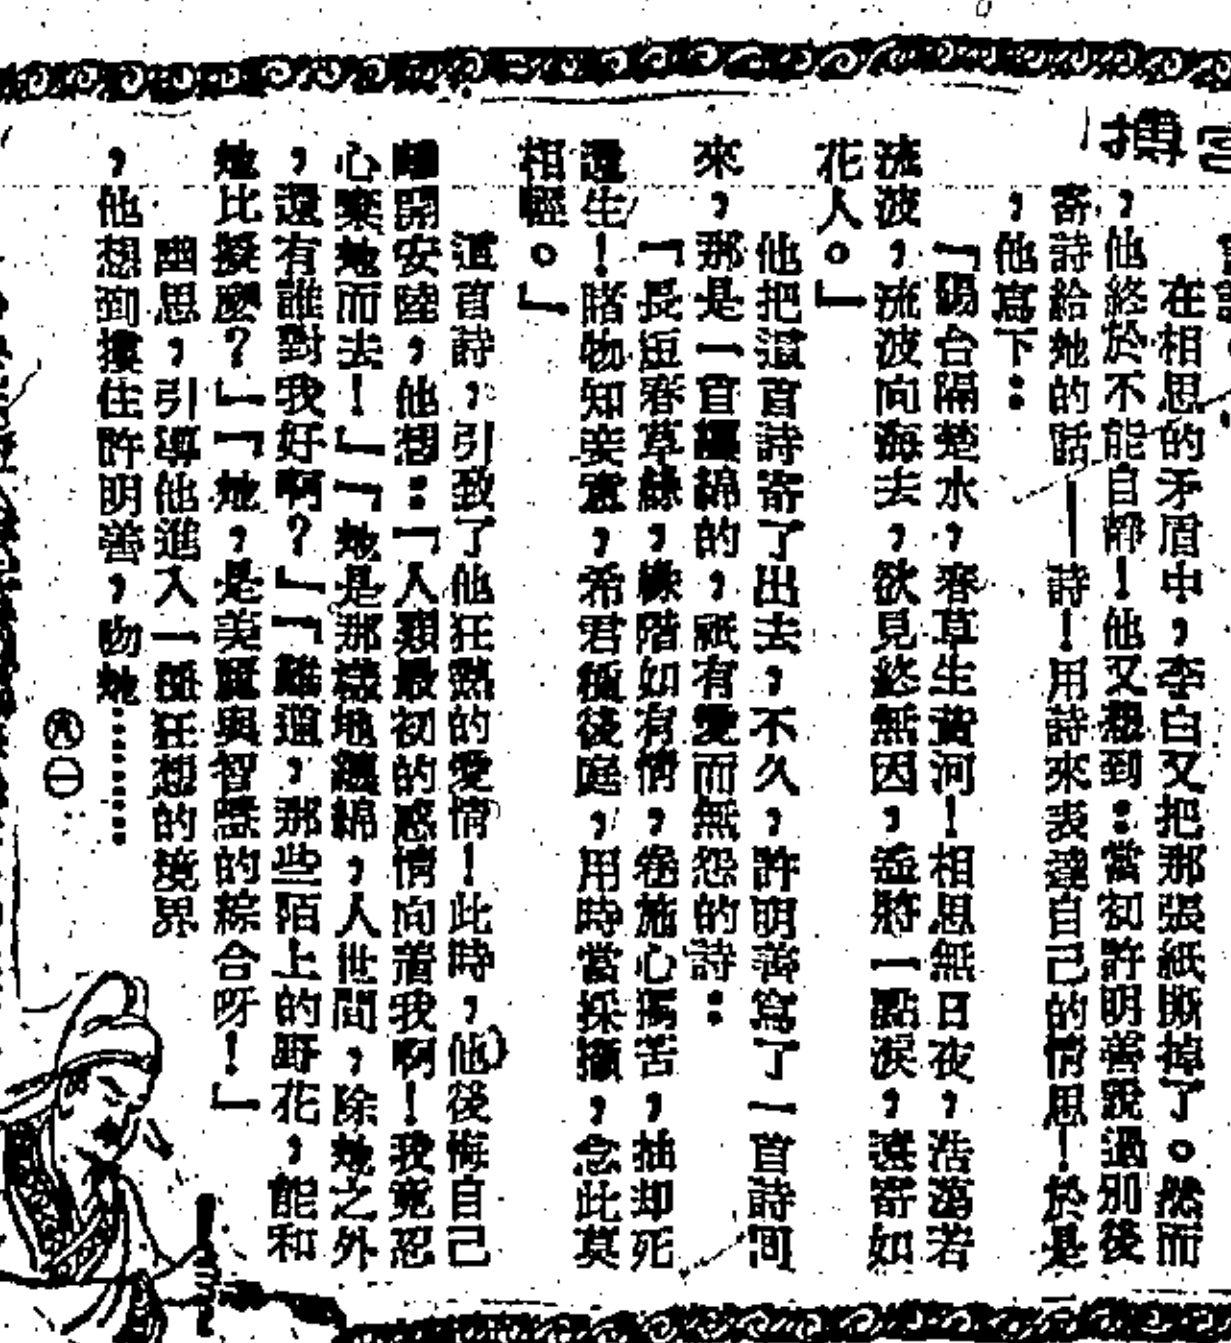 在相思的矛盾中，李白又把那張紙撕掉了。然而
，他終於不能自靜！他又想到：當初許明善說過別後
寄詩給她的話——詩！用詩來表達自己的情思！於是
，他寫下：
「陽台隔楚水，春草生黃河！相思無日夜，浩蕩若
流波，流波向海去，欲見終無因，遙將一點淚，遠寄如
花人。」
他把這首詩寄了出去，不久，許明善寫了一首詩回
來，那是一首纏綿的，祇有愛而無怨的詩：
「長短春草綠，緣階如有情，卷施心獨苦，抽却死
還生！睹物知妾意，希君種後庭，用時當採擷，念此莫
相輕。」
這首詩，引致了他狂熱的愛情！此時，他後悔自己
離開安陸，他想：「人類最初的感情向着我啊！我竟忍
心棄她而去！」「她是那樣地纏綿，人世間，除她之外
，還有誰對我好啊？」「難道，那些陌上的野花，能和
她比擬麼？」「她，是美麗與智慧的綜合呀！」
幽思，引導他進入一種狂想的境界
，他想到摟住許明善，吻她………